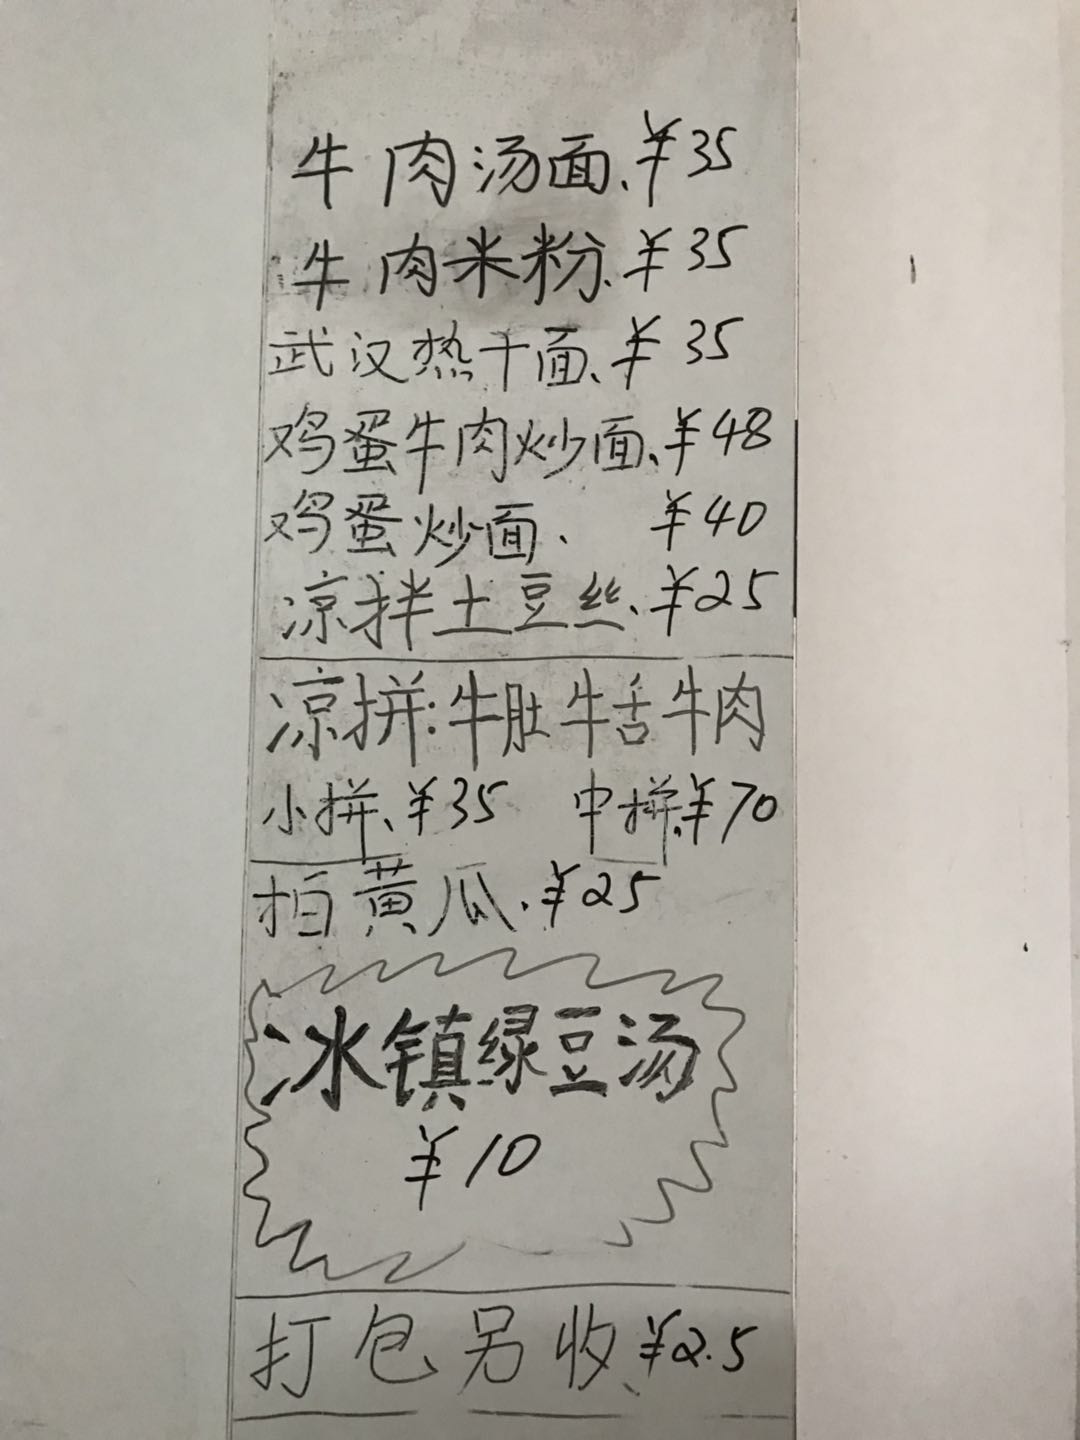 牛肉汤面、¥35
牛肉米粉、¥35
武汉热干面、¥35
鸡蛋牛肉炒面、¥48
鸡蛋炒面、 ¥40
凉拌土豆丝、¥25
凉拼:牛肚牛舌牛肉
小拼、¥35 中拼、¥70
拍黄瓜、¥25
冰镇绿豆汤
¥10
打包另收、¥2.5